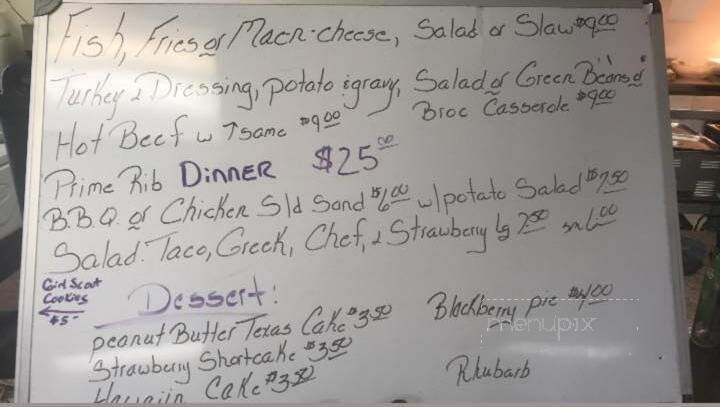 Fish, Fries or Macn-cheese, Salad or Slaw $9.00
Turkey & Dressing, potato & gravy, Salad or Green Beans or
Broc Casserole $9.00
Hot Beef w 7 same $9.00
Prime Rib Dinner $25.00
B.B.Q. or Chicken Sld Sand $6.00 w/potato Salad $7.50
Salad: Taco, Greek, Chef, & Strawberry lg 7.50 sm 6.00
Girl Scout
Cookies
$5-
Dessert:
peanut Butter Texas Cake $3.50
Blackberry pie $4.00
Strawberry Shortcake $3.50
Rhubarb
Cake $3.50
menupix